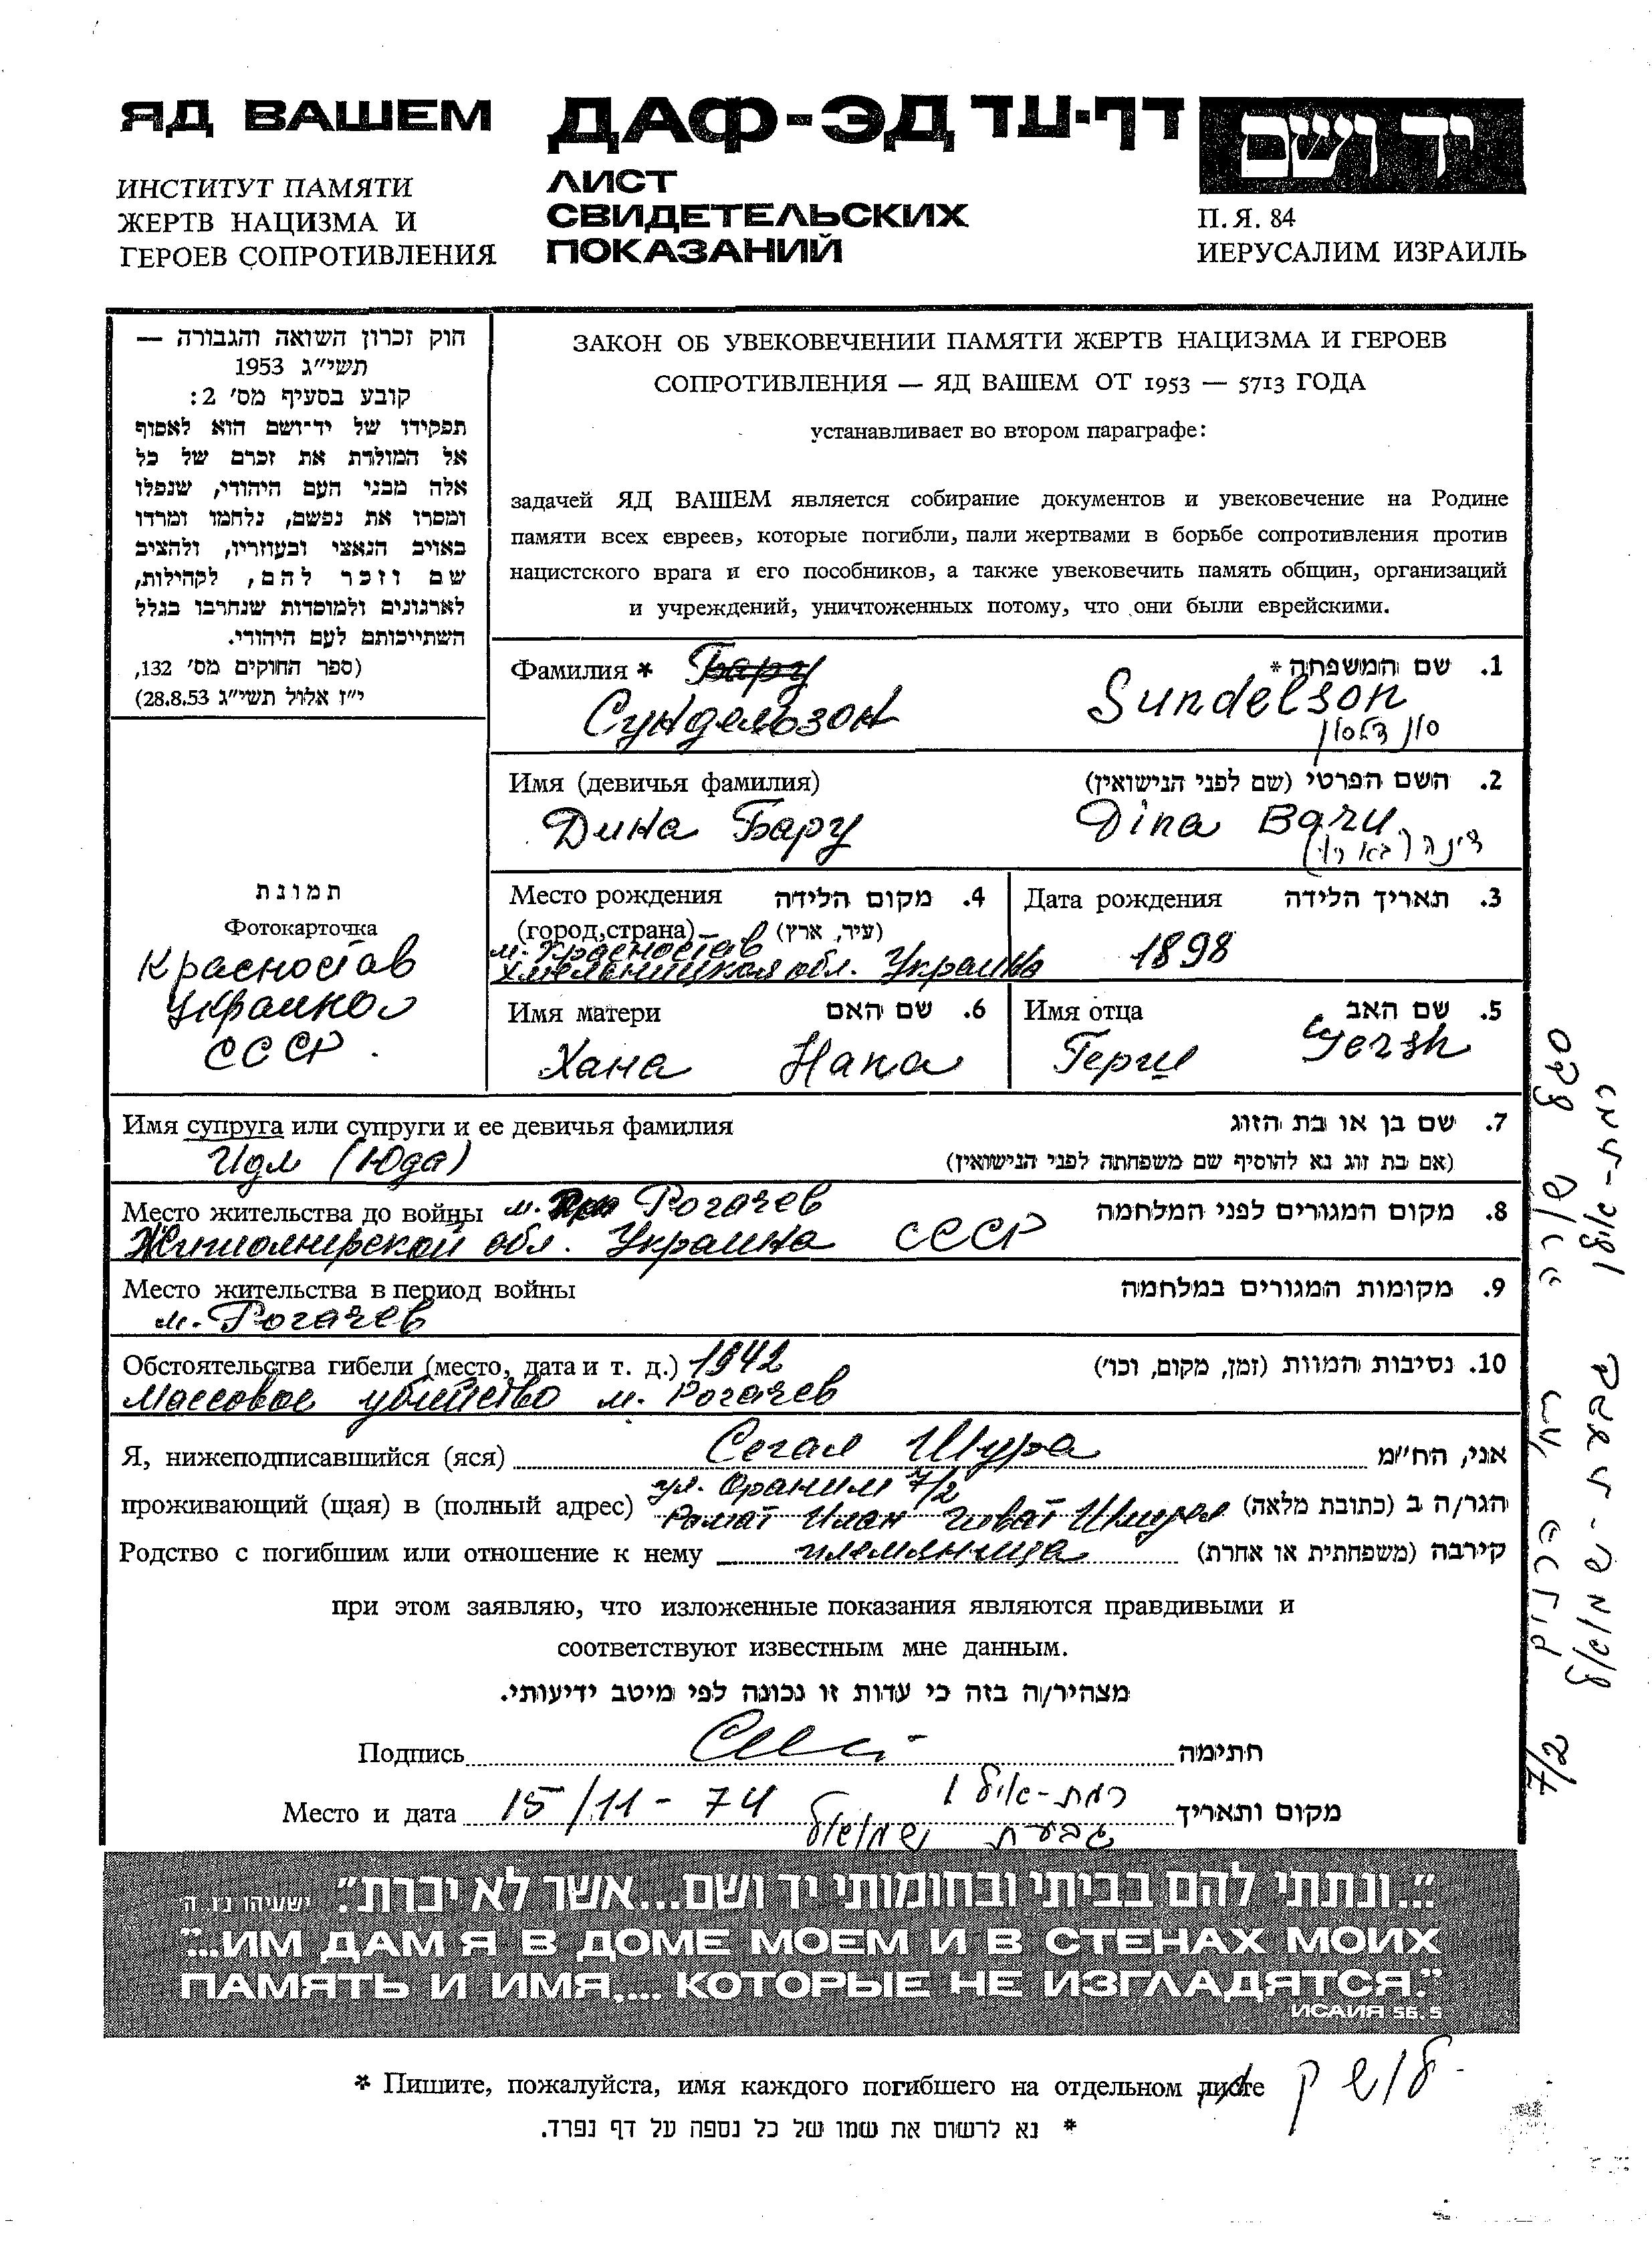 ЯД ВАШЕМ
ИНСТИТУТ ПАМЯТИ
ЖЕРТВ НАЦИЗМА И
ГЕРОЕВ СОПРОТИВЛЕНИЯ
ДАФ-ЭД דף-עד
ЛИСТ
СВИДЕТЕЛЬСКИХ
ПОКАЗАНИЙ
יד ושם
П. Я. 84
ИЕРУСАЛИМ ИЗРАИЛЬ
חוק זכרון השואה והגבורה —
תשי״ג 1953
קובע בסעיף מס׳ 2:
תפקידו של יד־ושם הוא לאסוף
אל המולדת את זכרם של כל
אלה מבני העם היהודי, שנפלו
ומסרו את נפשם, נלחמו ומרדו
באויב הנאצי ובעוזריו, ולהציב
שם וזכר להם, לקהילות,
לארגונים ולמוסדות שנחרבו בגלל
השתייכותם לעם היהודי.
(ספר החוקים מס׳ 132,
י״ז אלול תשי״ג 28.8.53)
ЗАКОН ОБ УВЕКОВЕЧЕНИИ ПАМЯТИ ЖЕРТВ НАЦИЗМА И ГЕРОЕВ
СОПРОТИВЛЕНИЯ — ЯД ВАШЕМ ОТ 1953 — 5713 ГОДА
устанавливает во втором параграфе:
задачей ЯД ВАШЕМ является собирание документов и увековечение на Родине
памяти всех евреев, которые погибли, пали жертвами в борьбе сопротивления против
нацистского врага и его пособников, а также увековечить память общин, организаций
и учреждений, уничтоженных потому, что они были еврейскими.
Фамилия * Бару 1. שם המשפחה *
Сундельзон Sundelson
סונדלסון
Имя (девичья фамилия) 2. השם הפרטי (שם לפני הנישואין)
Дина Бару Dina Baru
דינה (בארו)
תמונת
Фотокарточка
Красностав
Украина
СССР.
Место рождения 4. מקום הלידה
(город,страна) (עיר, ארץ)
м. Красностав
Хмельницкая обл. Украина
Дата рождения 3. תאריך הלידה
1898
Имя матери 6. שם האם
Хана Hana
Имя отца 5. שם האב
Герш Gersh
Имя супруга или супруги и ее девичья фамилия 7. שם בן או בת הזוג
Идл (Юда) (אם בת זוג נא להוסיף שם משפחתה לפני הנישואין)
Место жительства до войны м. Рогачев 8. מקום המגורים לפני המלחמה
Житомирской обл. Украина СССР
Место жительства в период войны 9. מקומות המגורים במלחמה
м. Рогачев
Обстоятельства гибели (место, дата и т. д.) 1942 10. נסיבות המוות (זמן, מקום, וכו׳)
Массовое убийство м. Рогачев
Я, нижеподписавшийся (яся) Сегал Шура אני, הח״מ
ул. Ораним 7/2
проживающий (щая) в (полный адрес) Рамат Илан Гиват Шмуэл הגר/ה ב (כתובת מלאה)
Родство с погибшим или отношение к нему племянница קירבה (משפחתית או אחרת)
при этом заявляю, что изложенные показания являются правдивыми и
соответствуют известным мне данным.
מצהיר/ה בזה כי עדות זו נכונה לפי מיטב ידיעותי.
Подпись חתימה
Место и дата 15/11-74 רמת-אילן מקום ותאריך
גבעת שמואל
סגל שורה רח׳ הרנים 7/2
רמת-אילן גבעת-שמואל
״...ונתתי להם בביתי ובחומותי יד ושם...אשר לא יכרת״. ישעיהו נו. ה׳
"...ИМ ДАМ Я В ДОМЕ МОЕМ И В СТЕНАХ МОИХ
ПАМЯТЬ И ИМЯ,... КОТОРЫЕ НЕ ИЗГЛАДЯТСЯ."
ИСАИЯ 56.5
* Пишите, пожалуйста, имя каждого погибшего на отдельном листе
* נא לרשום את שמו של כל נספה על דף נפרד.